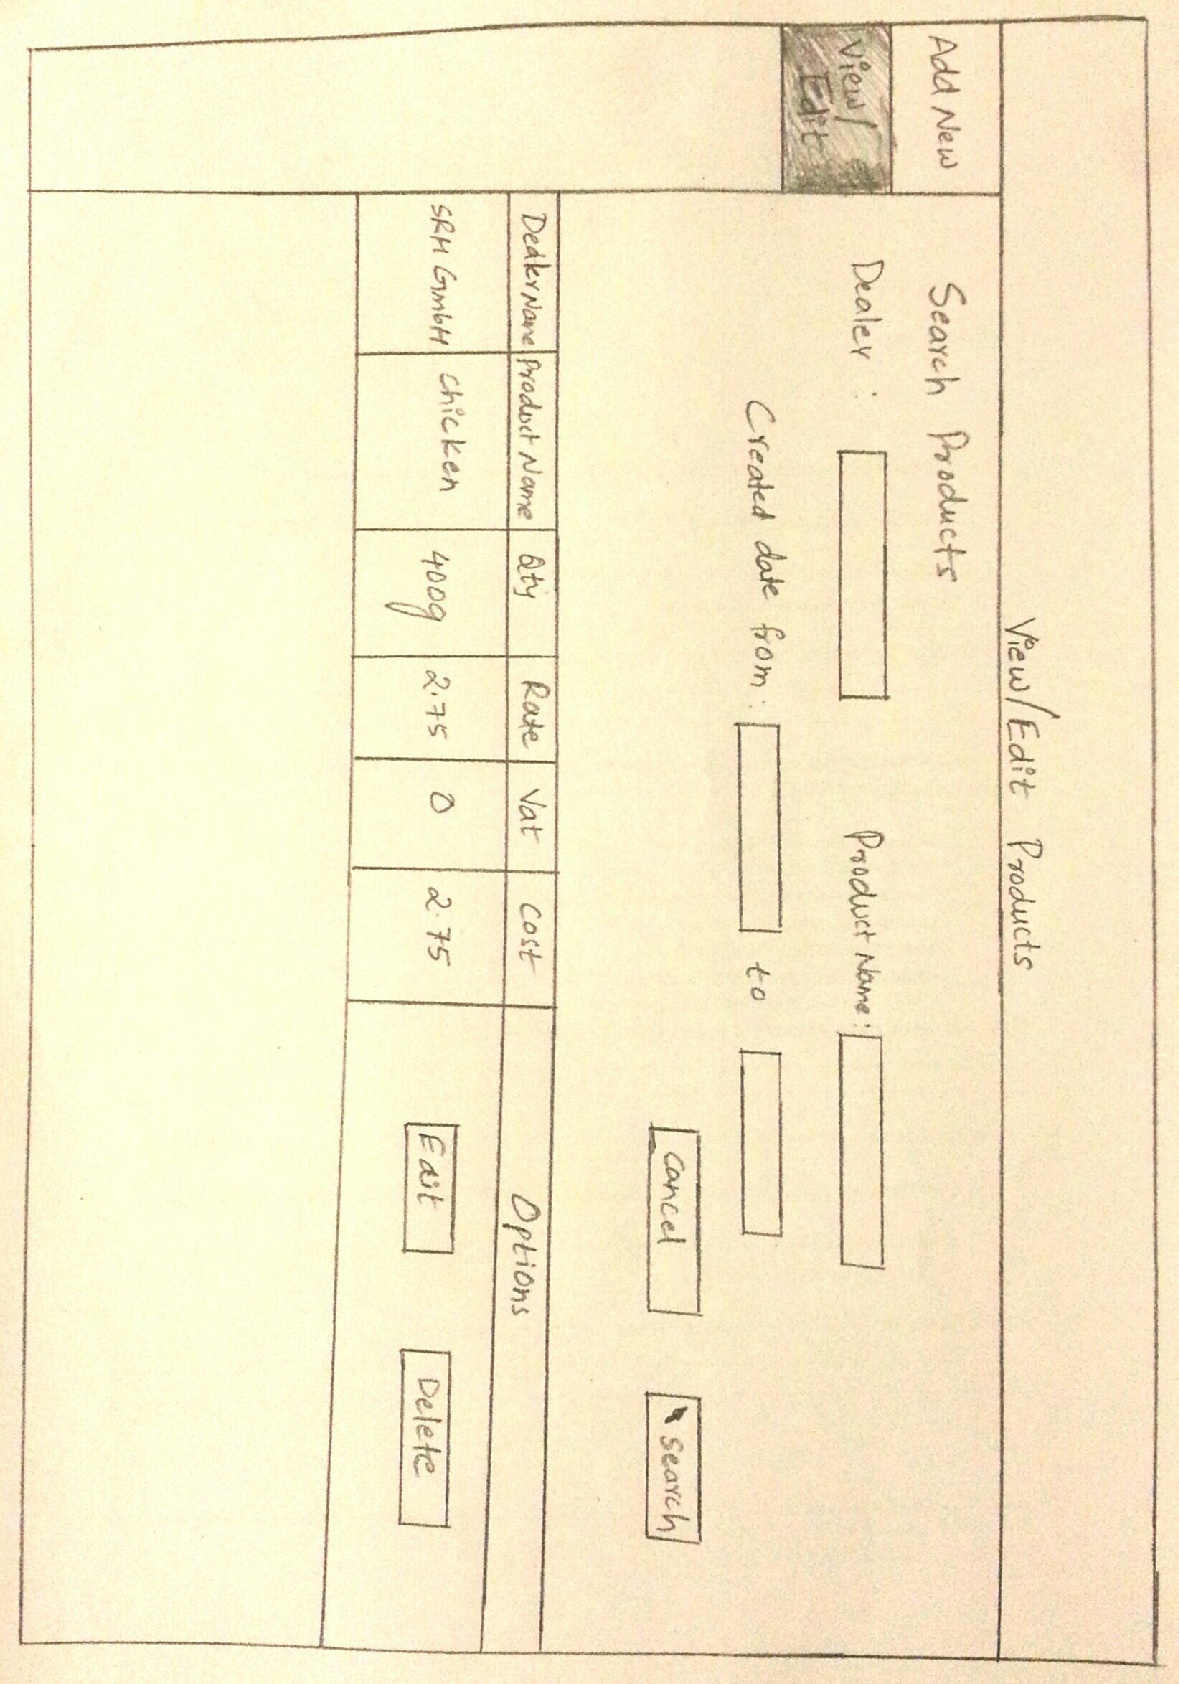 View/Edit Products
Add New
View/
Edit
Search Products
Dealer :
Product Name:
Created date from :
to
Cancel
Search
Dealer Name
Product Name
Qty
Rate
Vat
Cost
Options
SRH GmbH
Chicken
400g
2.75
0
2.75
Edit
Delete